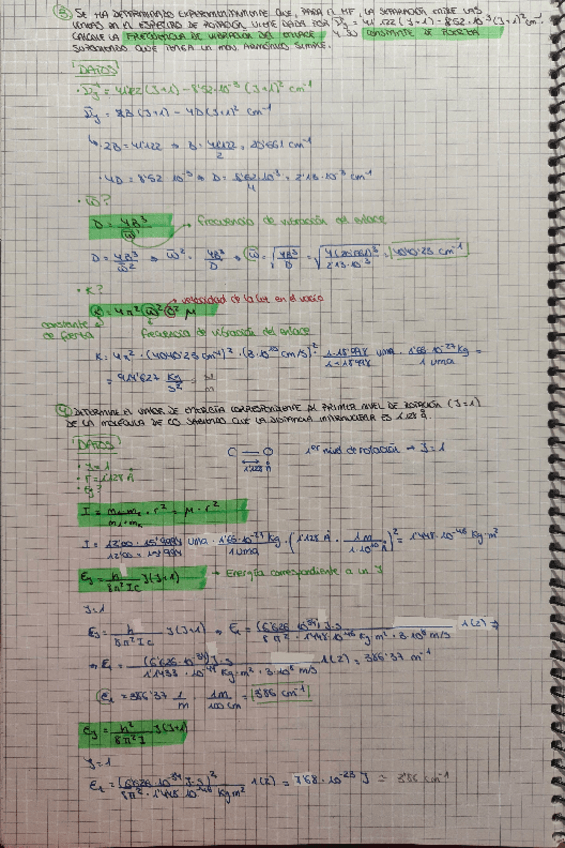 ③ SE HA DETERMINADO EXPERIMENTALMENTE QUE, PARA EL HF, LA SEPARACIÓN ENTRE LAS
LÍNEAS EN EL ESPECTRO DE ROTACIÓN, VIENE DADA POR ν̄j = 41'122 (J+1) - 8'52·10⁻³ (J+1)³ cm⁻¹.
CALCULE LA FRECUENCIA DE VIBRACIÓN DEL ENLACE Y SU CONSTANTE DE FUERZA
SUPONIENDO QUE TENGA UN MOV. ARMÓNICO SIMPLE.
DATOS
· ν̄j = 41'122 (J+1) - 8'52·10⁻³ (J+1)³ cm⁻¹
ν̄j = 2B (J+1) - 4D (J+1)³ cm⁻¹
↳ · 2B = 41'122 ⇒ B = 41'122/2 = 20'561 cm⁻¹
· 4D = 8'52·10⁻³ ⇒ D = 8'52·10⁻³/4 = 2'13·10⁻³ cm⁻¹
· ω̄?
D = 4B³/ω̄² → frecuencia de vibración del enlace
D = 4B³/ω̄² ⇒ ω̄² = 4B³/D ⇒ ω̄ = √(4B³/D) = √(4(20'561)³/2'13·10⁻³) = 4040'23 cm⁻¹
· K?
K = 4π² ω̄² c² μ → velocidad de la luz en el vacío
constante de fuerza
frecuencia de vibración del enlace
K = 4π² · (4040'23 cm⁻¹)² · (3·10¹⁰ cm/s)² ·
= 914'627 Kg/s² = N/m
④ DETERMINE EL VALOR DE ENERGÍA CORRESPONDIENTE AL PRIMER NIVEL DE ROTACIÓN (J=1)
DE LA MOLÉCULA DE CO SABIENDO QUE LA DISTANCIA INTERNUCLEAR ES 1'128 Å.
DATOS
· J = 1
· r = 1'128 Å
· Ej?
C = O
1'128 Å
1er nivel de rotación → J = 1
I = m₁·m₂/m₁+m₂ · r² = μ · r²
I = 12'00 · 15'9994/12'00 + 15'9994 uma · 1'66·10⁻²⁷ Kg/1 uma · (1'128 Å · 1m/1·10¹⁰ Å)² = 1'448·10⁻⁴⁶ Kg·m²
Ej = h/8π²Ic J(J+1) → Energía correspondiente a un J
J=1
Ej = h/8π²Ic J(J+1) ⇒ E₁ = (6'626·10⁻³⁴) J·s/8π² · 1'448·10⁻⁴⁶ Kg m² · 3·10⁸ m/s 1(2) ⇒
⇒ E₁ = (6'626·10⁻³⁴) J·s/ Kg·m² · 3·10⁸ m/s 1(2) = 386'37 m⁻¹
E₁ = 386'37 1/m · 1m/100 cm = 3'86 cm⁻¹
Ej = h²/8π²I J(J+1)
J=1
E₁ = (6'626·10⁻³⁴ J·s)²/8π² · 1'448·10⁻⁴⁶ Kg m² 1(2) = 7'68·10⁻²³ J = 3'86 cm⁻¹